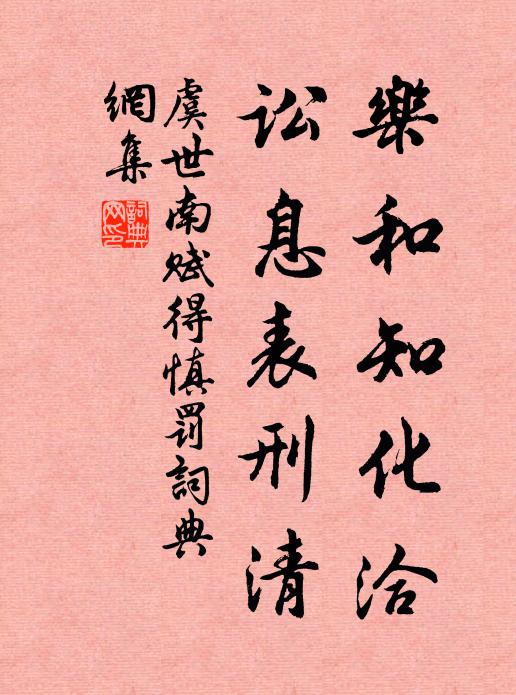 樂和知化洽
訟息表刑清
虞世南賦得慎罰詞典
網集
詞典
網印